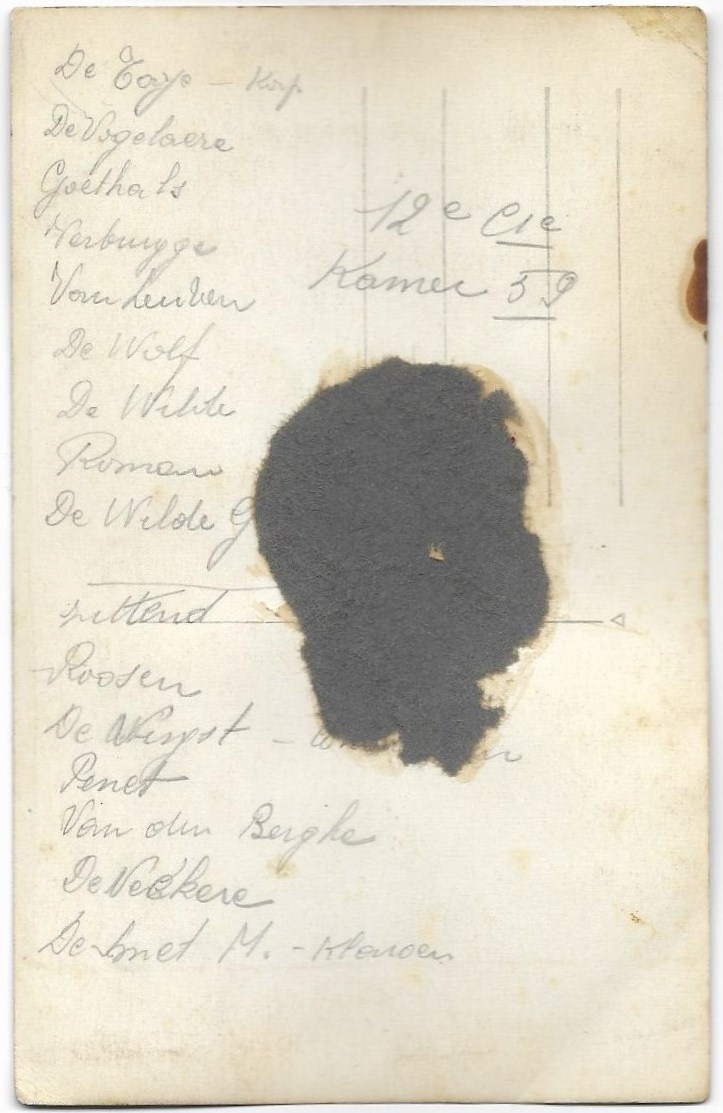 De Taye - Korp
De Vogelaere
Goethals
Verbrugge
12e Cie
Van Leuven
Kamer 59
De Wolf
De Wilde
Roman
De Wilde G
zittend
Roosen
De
Penet
Van den Berghe
De Veckere
De Smet M. - Klaroen